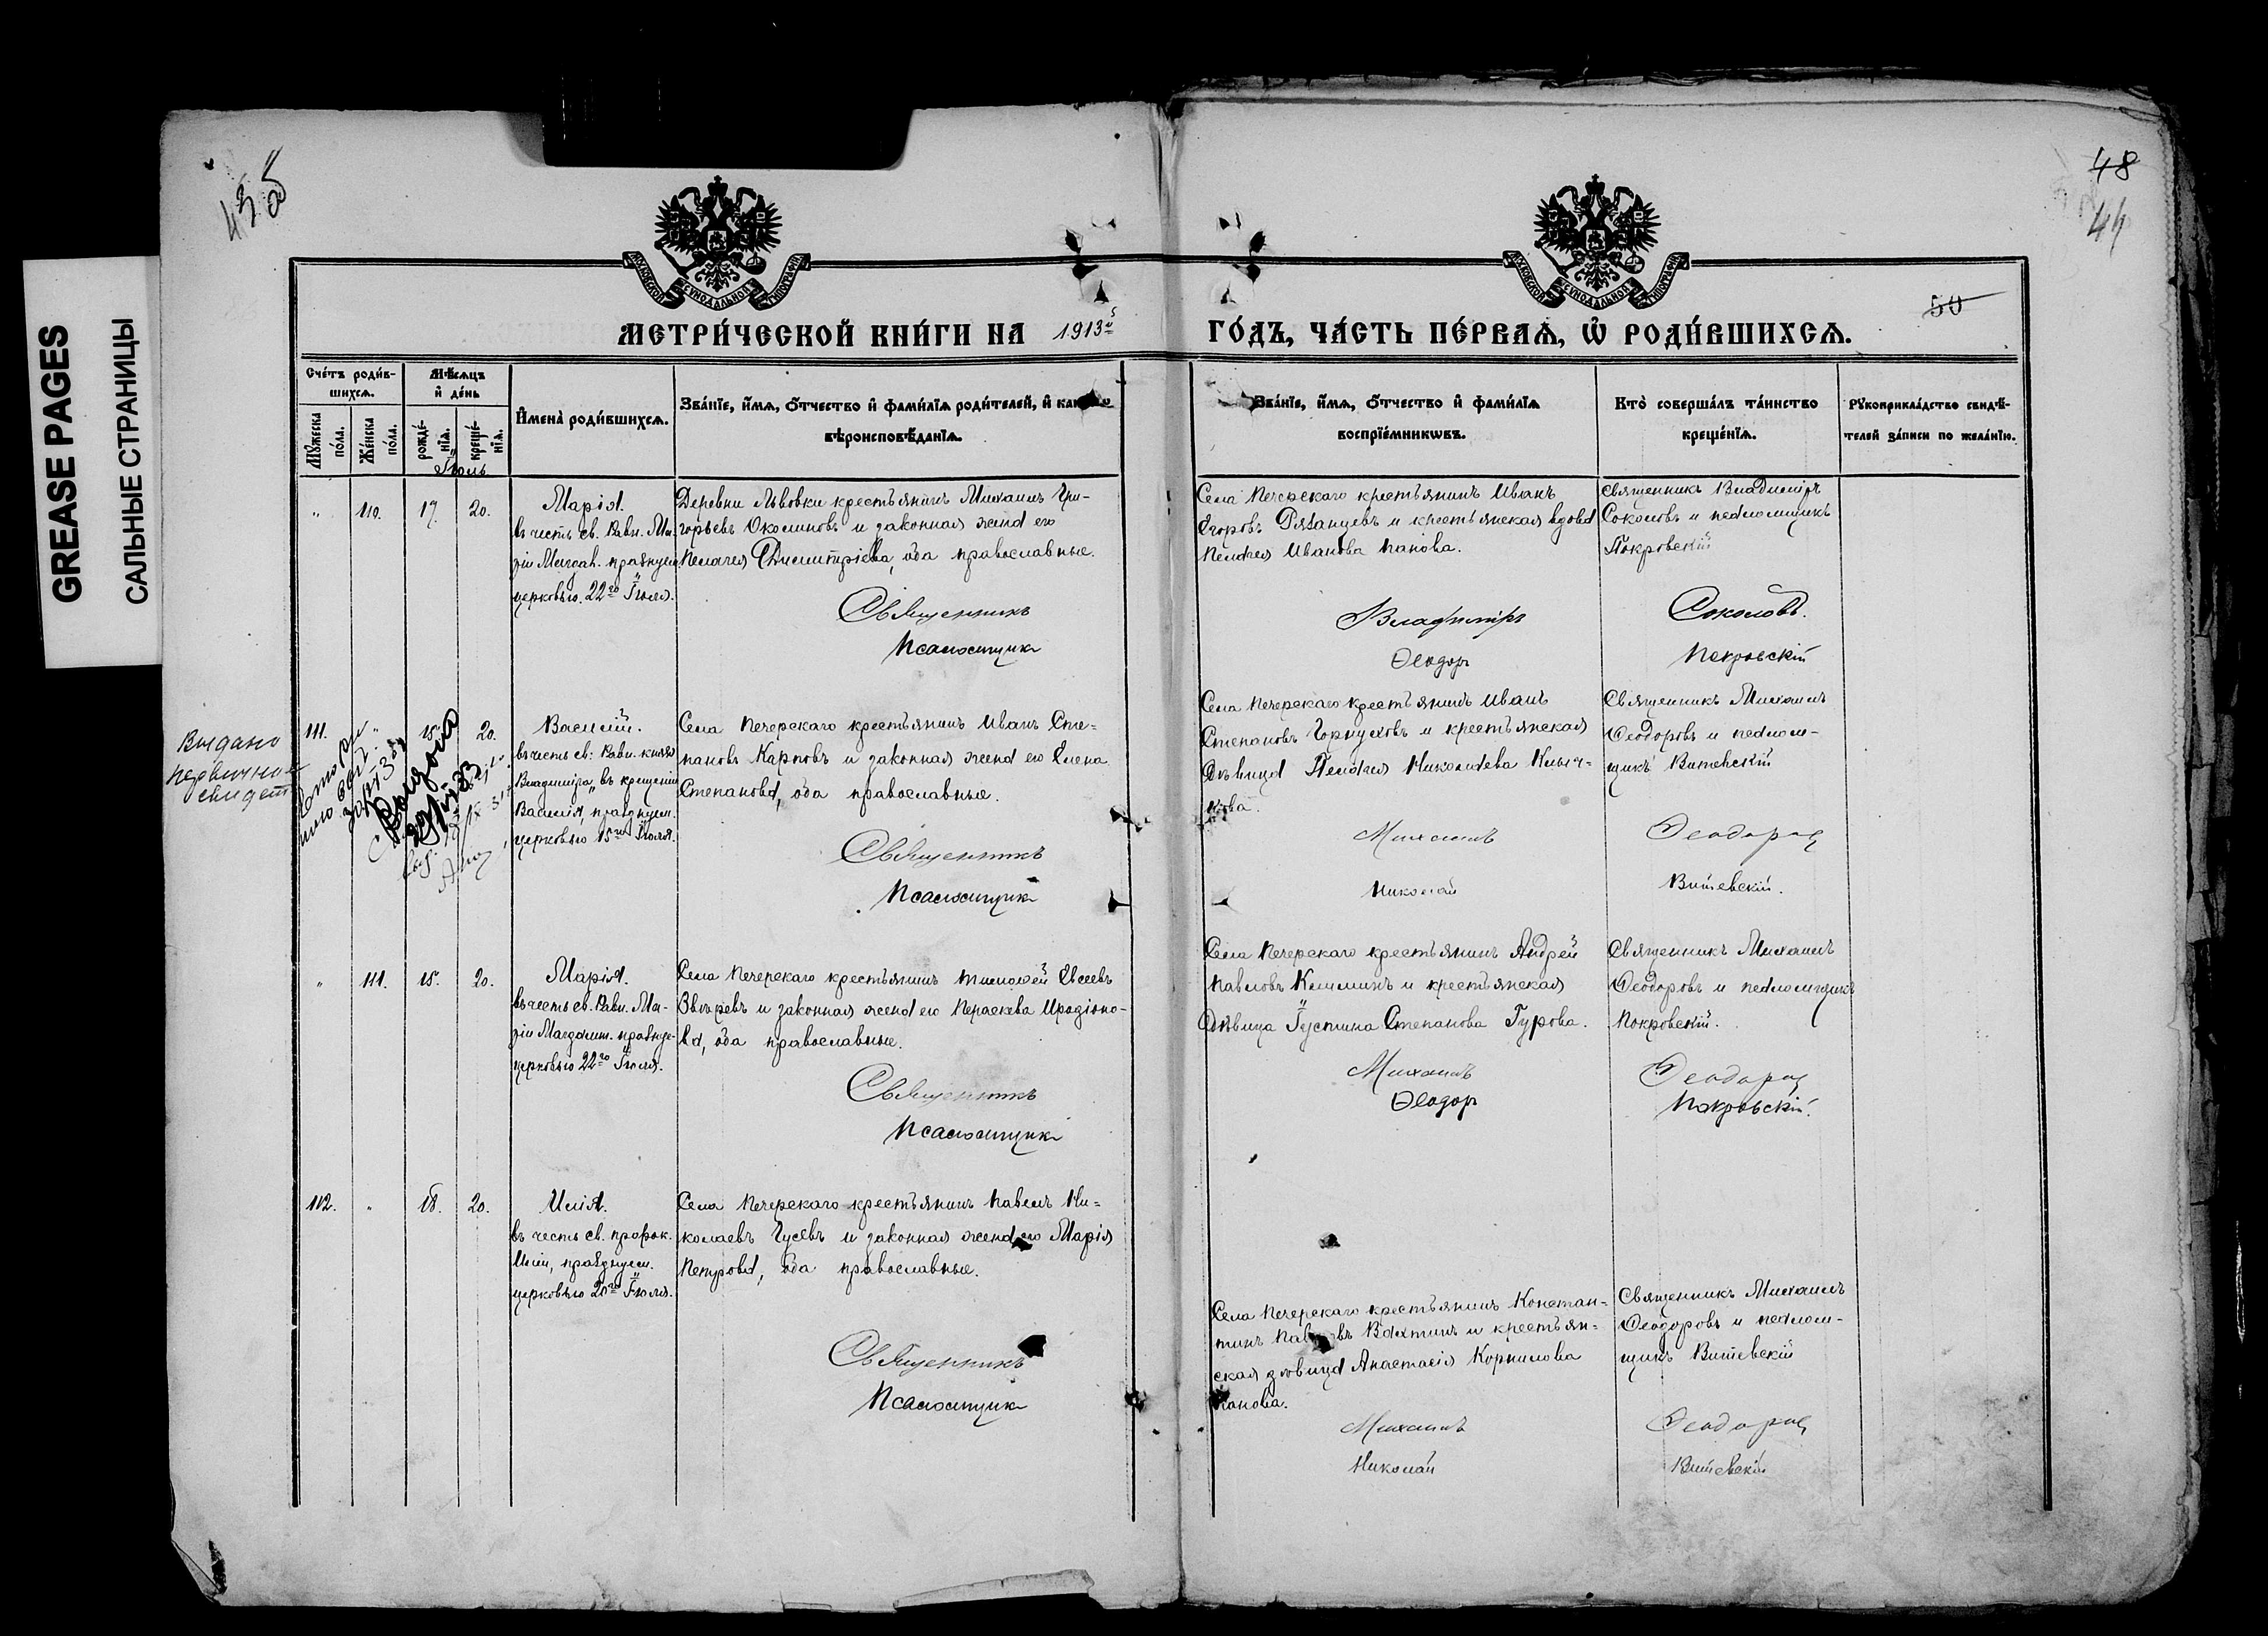 GREASE PAGES
САЛЬНЫЕ СТРАНИЦЫ
48
50
МОСКОВСКОЙ СѴНОДАЛЬНОЙ ТИПОГРАФІИ
МОСКОВСКОЙ СѴНОДАЛЬНОЙ ТИПОГРАФІИ
МЕТРИ́ЧЕСКОЙ КНИ́ГИ НА 1913й
ГО́ДЪ, ЧА́СТЬ ПЕ́РВАѦ, Ѡ҆ РОДИ́ВШИХСѦ.
Сче́тъ роди́в-
шихсѧ.
Мѣ́сѧцъ
и҆ де́нь
Мꙋ́жеска
по́ла.
Же́нска
по́ла.
рожде́-
нїѧ.
креще́-
нїѧ.
И҆мена̀ роди́вшихсѧ.
Зва́нїе, и҆́мѧ, ѻ҆́тчество и҆ фами́лїѧ роди́телей, и҆
вѣроисповѣ́данїѧ.
Зва́нїе, и҆́мѧ, ѻ҆́тчество и҆ фами́лїѧ
воспрїе́мникѡвъ.
Кто̀ соверша́лъ та́инство
креще́нїѧ.
Рꙋкоприкла́дство свидѣ́-
телей за́писи по жела́нїю.
Іюль
" 110. 17. 20.
Марія.
въ честь св. Равн. Ма-
ріи Магдал. празнуем.
церковью. 22го Іюля.
Деревни Львовки крестьянинъ Михаилъ Гри-
горьевъ Околиновъ и законная жена его
Пелагея Димитріева, оба православные.
Священникъ
Псаломщикъ
Села Печерскаго крестьянинъ Иванъ
Егоровъ Рязанцевъ и крестьянская вдова
Пелагея Иванова Панова.
Владиміръ
Ѳеодоръ
Священникъ Владиміръ
Соколовъ и псаломщикъ
Покровскій
Соколовъ.
Покровскій
Выдано
первичное
свидет
111. " 15. 20.
Василій.
въ честь св. Равн. князя
Владиміра, въ крещеніи
Василія, празднуем.
церковью 15го Іюля.
Села Печерскаго крестьянинъ Иванъ Сте-
пановъ Карповъ и законная жена его Елена
Степанова, оба православные.
Священникъ
Псаломщикъ
Села Печерскаго крестьянинъ Иванъ
Степановъ Горпуховъ и крестьянская
дѣвица Пелагея Николаева
Михаилъ
Николай
Священникъ Михаилъ
Ѳеодоровъ и псалом-
щикъ Витевскій
Ѳеодоровъ
Витевскій.
" 111. 15. 20.
Марія.
въ честь св. Равн. Ма-
ріи Магдалин. празнуе-
церковью 22го Іюля.
Села Печерскаго крестьянинъ Тимоѳей Евсеевъ
Звѣревъ и законная жена его Параскева Иродіоно-
ва, оба православные.
Священникъ
Псаломщикъ
Села Печерскаго крестьянинъ Андрей
Павловъ и крестьянская
дѣвица Іустина Степанова Гурова.
Михаилъ
Ѳеодоръ
Священникъ Михаилъ
Ѳеодоровъ и псаломщикъ
Покровскій.
Ѳеодоровъ
Покровскій.
112. " 18. 20.
Илія.
въ честь св. пророк.
Иліи, празднуем.
церковью 20го Іюля.
Села Печерскаго крестьянинъ Павелъ Ни-
колаевъ Гусевъ и законная жена его Марія
Петрова, оба православные.
Священникъ
Псаломщикъ
Села Печерскаго крестьянинъ Констан-
тинъ Павловъ Вахтинъ и крестьян-
ская дѣвица Анастасія Корнилова
Панова.
Михаилъ
Николай
Священникъ Михаилъ
Ѳеодоровъ и псалом-
щикъ Витевскій
Ѳеодоровъ
Витевскій